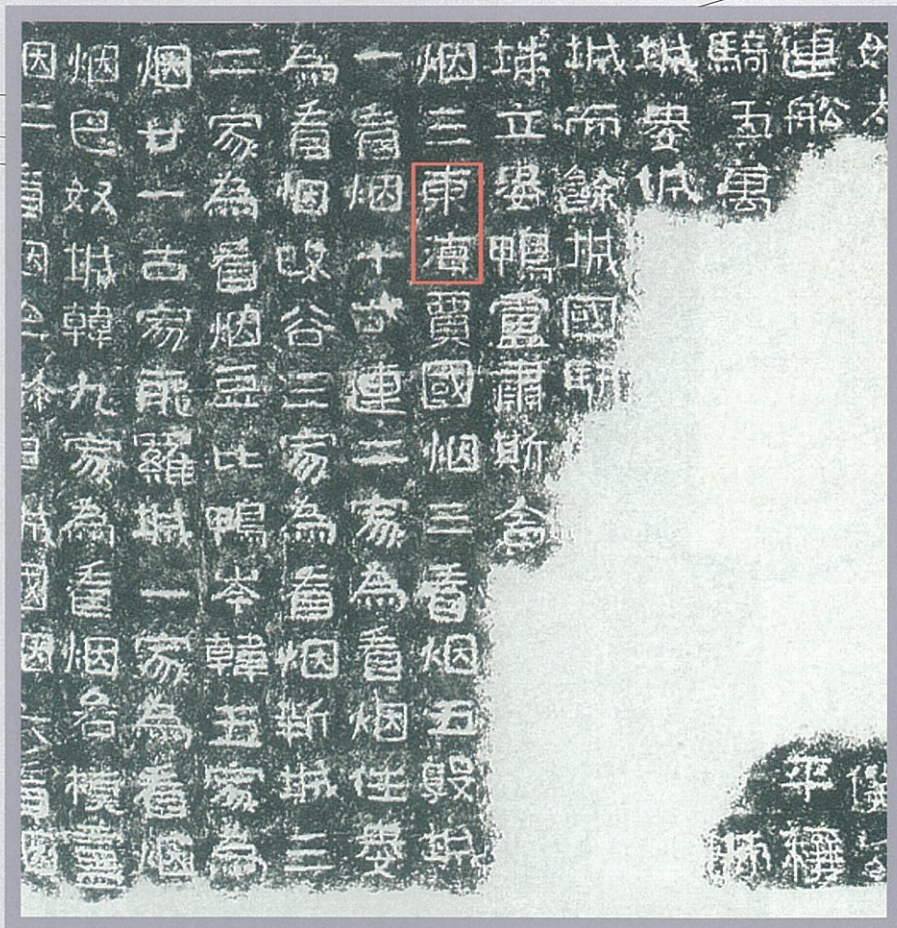 連船平穰
騎五萬
城婁城
城而餘城國駟
城立婁鴨盧肅斯舍
烟三東海賈國烟三看烟五敦城
一看烟十訾連二家為看烟住婁
為看烟改谷三家為看烟新城三
二家為看烟豆比鴨岑韓五家為
烟廿一古家龍羅城一家為看烟
烟巴奴城韓九家為看烟各模盧